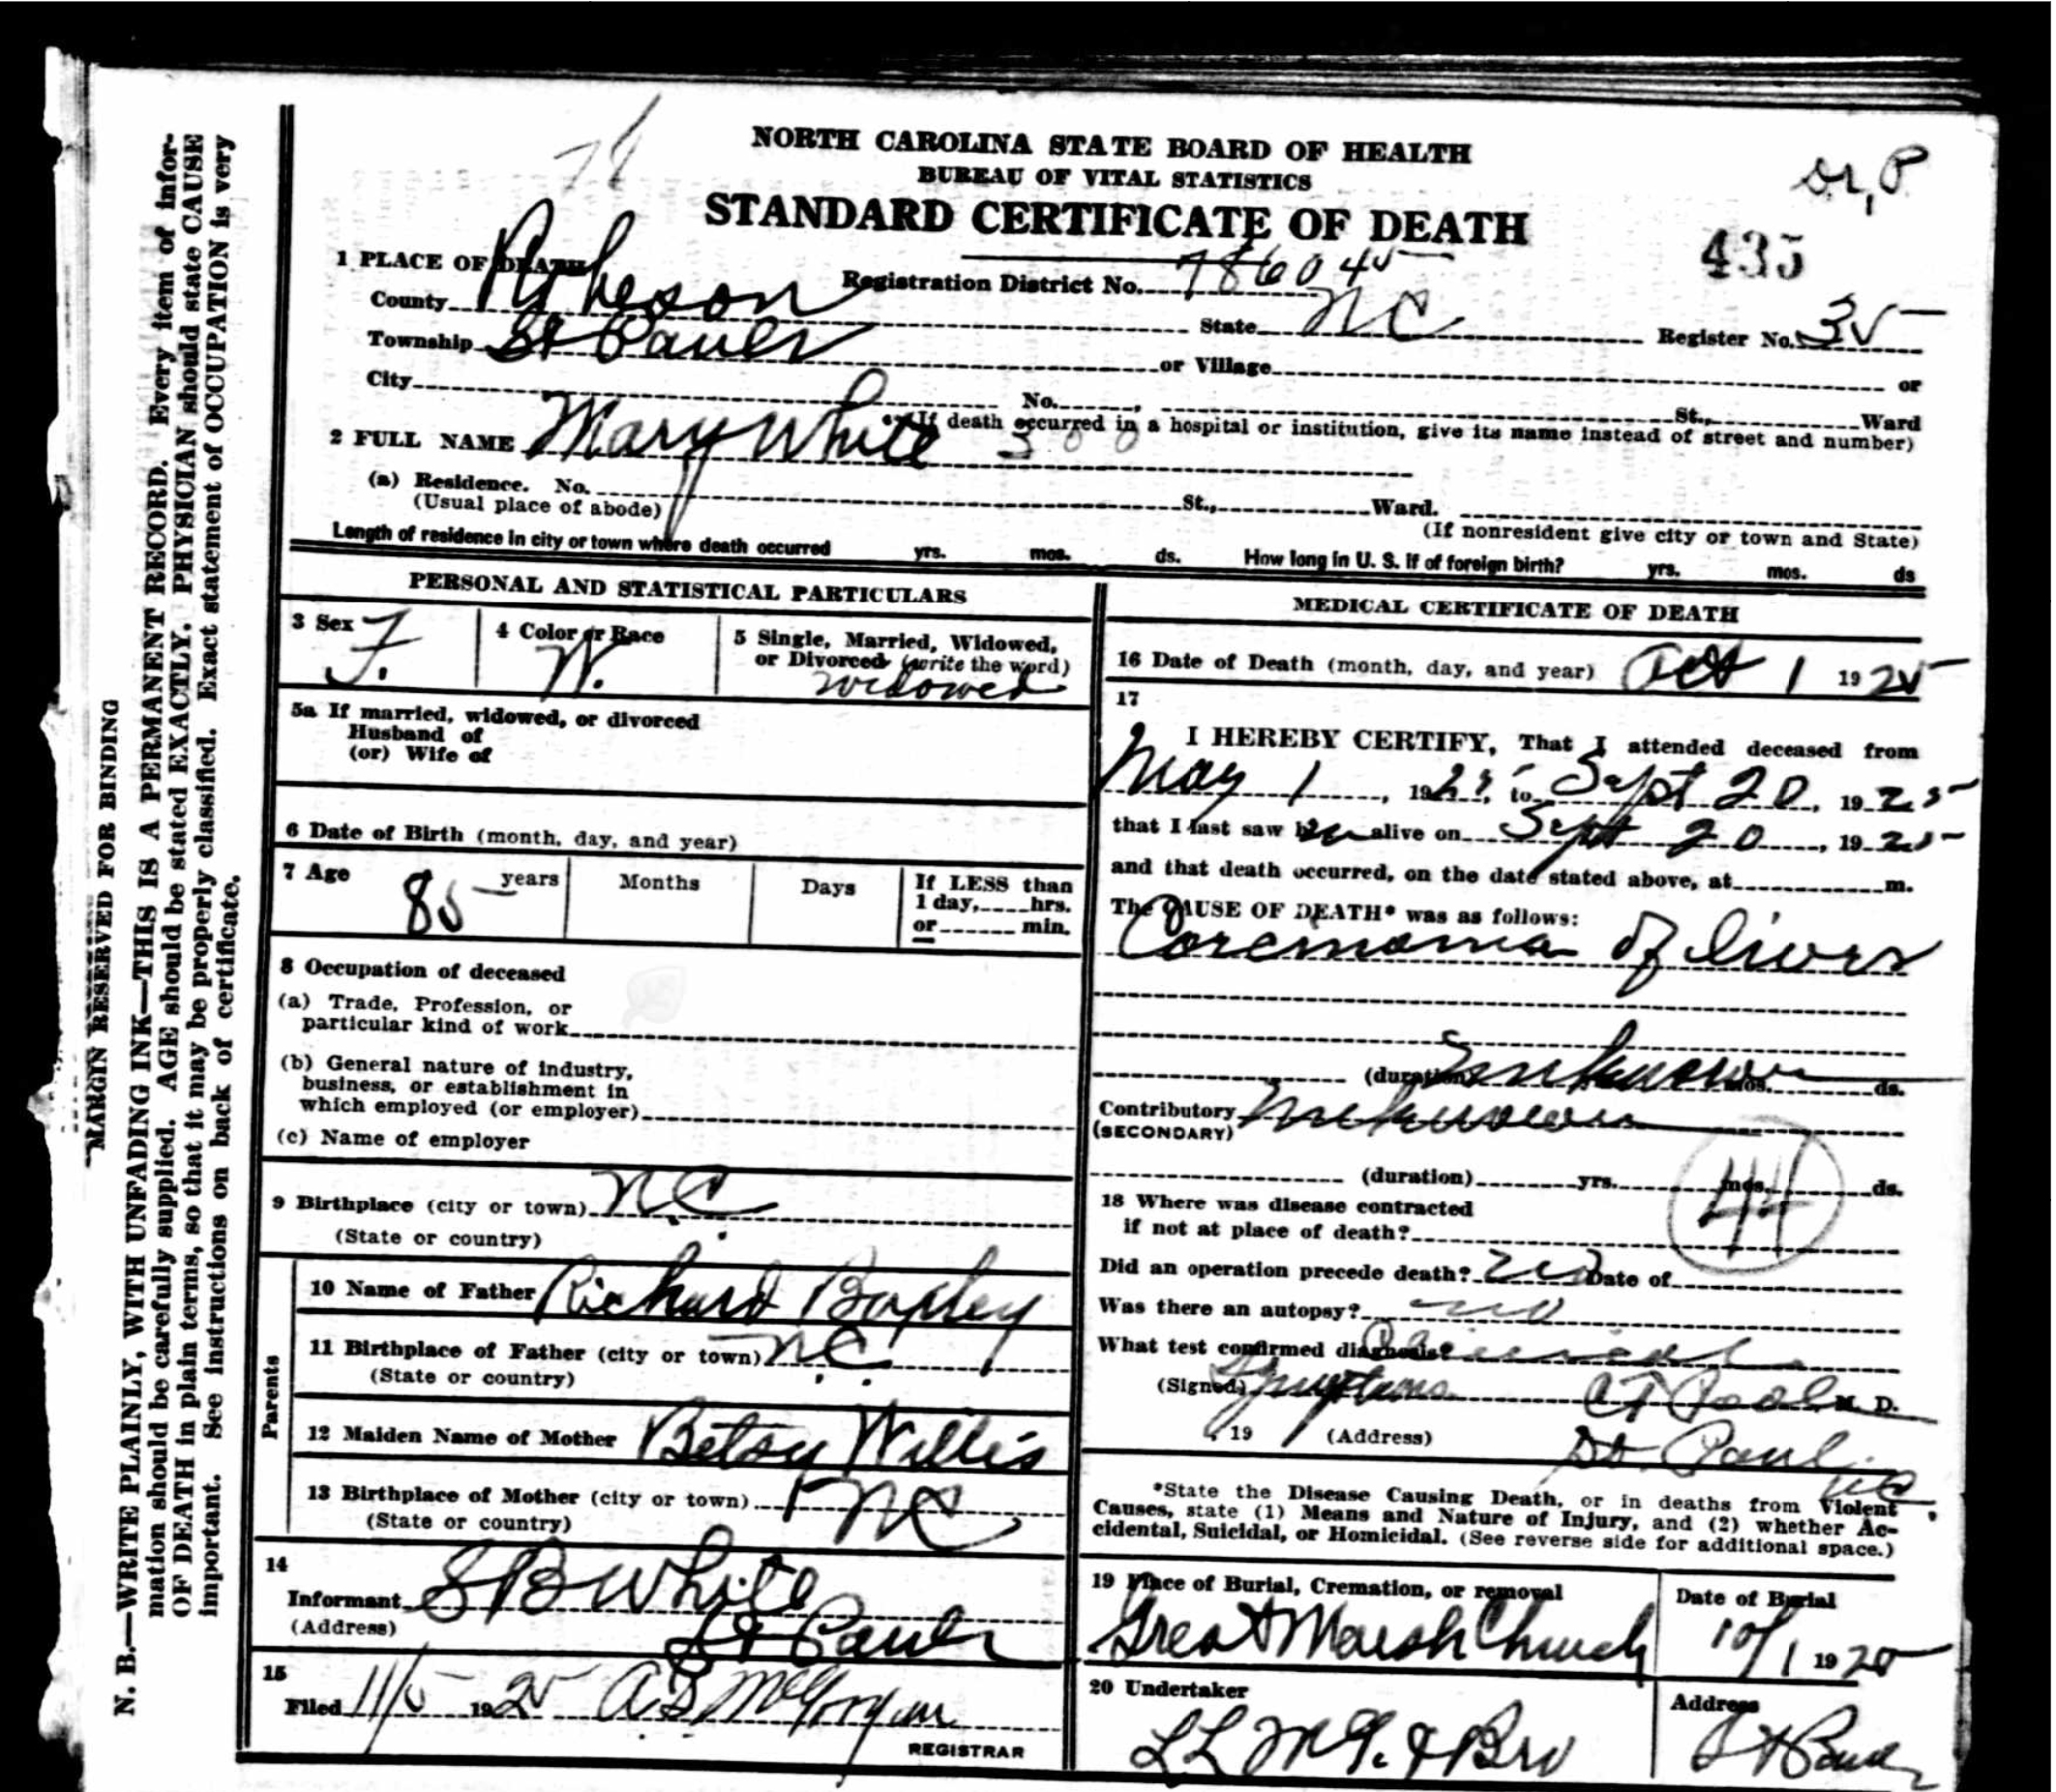 NORTH CAROLINA STATE BOARD OF HEALTH
BUREAU OF VITAL STATISTICS
STANDARD CERTIFICATE OF DEATH
Dr, P
435
1 PLACE OF DEATH
Registration District No. 786045
County Robeson State NC Register No. 35
Township St Pauls or Village or
City No. , St., Ward
(If death occurred in a hospital or institution, give its name instead of street and number)
2 FULL NAME Mary White 300
(a) Residence. No. St., Ward.
(Usual place of abode) (If nonresident give city or town and State)
Length of residence in city or town where death occurred yrs. mos. ds. How long in U. S. if of foreign birth? yrs. mos. ds
PERSONAL AND STATISTICAL PARTICULARS
3 Sex F.
4 Color or Race W.
5 Single, Married, Widowed,
or Divorced (write the word)
widowed
5a If married, widowed, or divorced
Husband of
(or) Wife of
6 Date of Birth (month, day, and year)
7 Age 85 years Months Days If LESS than
1 day, hrs.
or min.
8 Occupation of deceased
(a) Trade, Profession, or
particular kind of work
(b) General nature of industry,
business, or establishment in
which employed (or employer)
(c) Name of employer
9 Birthplace (city or town) N.C.
(State or country)
Parents
10 Name of Father Richard Boxley
11 Birthplace of Father (city or town) N.C.
(State or country)
12 Maiden Name of Mother Betsy Willis
13 Birthplace of Mother (city or town) NC
(State or country)
14
Informant S B White
(Address) St Pauls
15
Filed 11/5 1925 A.D. McGorgan
REGISTRAR
MEDICAL CERTIFICATE OF DEATH
16 Date of Death (month, day, and year) Oct 1 1925
17
I HEREBY CERTIFY, That I attended deceased from
May 1, 1925, to Sept 20, 1925
that I last saw her alive on Sept 20, 1925
and that death occurred, on the date stated above, at m.
The CAUSE OF DEATH* was as follows:
Corcinoma of liver
(duration) Unknown mos. ds.
Contributory Unknown
(SECONDARY)
(duration) yrs. mos. ds.
44
18 Where was disease contracted
if not at place of death?
Did an operation precede death? No Date of
Was there an autopsy? no
What test confirmed diagnosis? Clinical
Symptoms
(Signed) M. D.
, 19 (Address) St. Paul
NC
*State the Disease Causing Death, or in deaths from Violent
Causes, state (1) Means and Nature of Injury, and (2) whether Ac-
cidental, Suicidal, or Homicidal. (See reverse side for additional space.)
19 Place of Burial, Cremation, or removal
Great Marsh Church
Date of Burial
10/1 1925
20 Undertaker
L L McG. & Bro
Address
St Pauls
MARGIN RESERVED FOR BINDING
N. B.—WRITE PLAINLY, WITH UNFADING INK—THIS IS A PERMANENT RECORD. Every item of infor-
mation should be carefully supplied. AGE should be stated EXACTLY. PHYSICIAN should state CAUSE
OF DEATH in plain terms, so that it may be properly classified. Exact statement of OCCUPATION is very
important. See instructions on back of certificate.